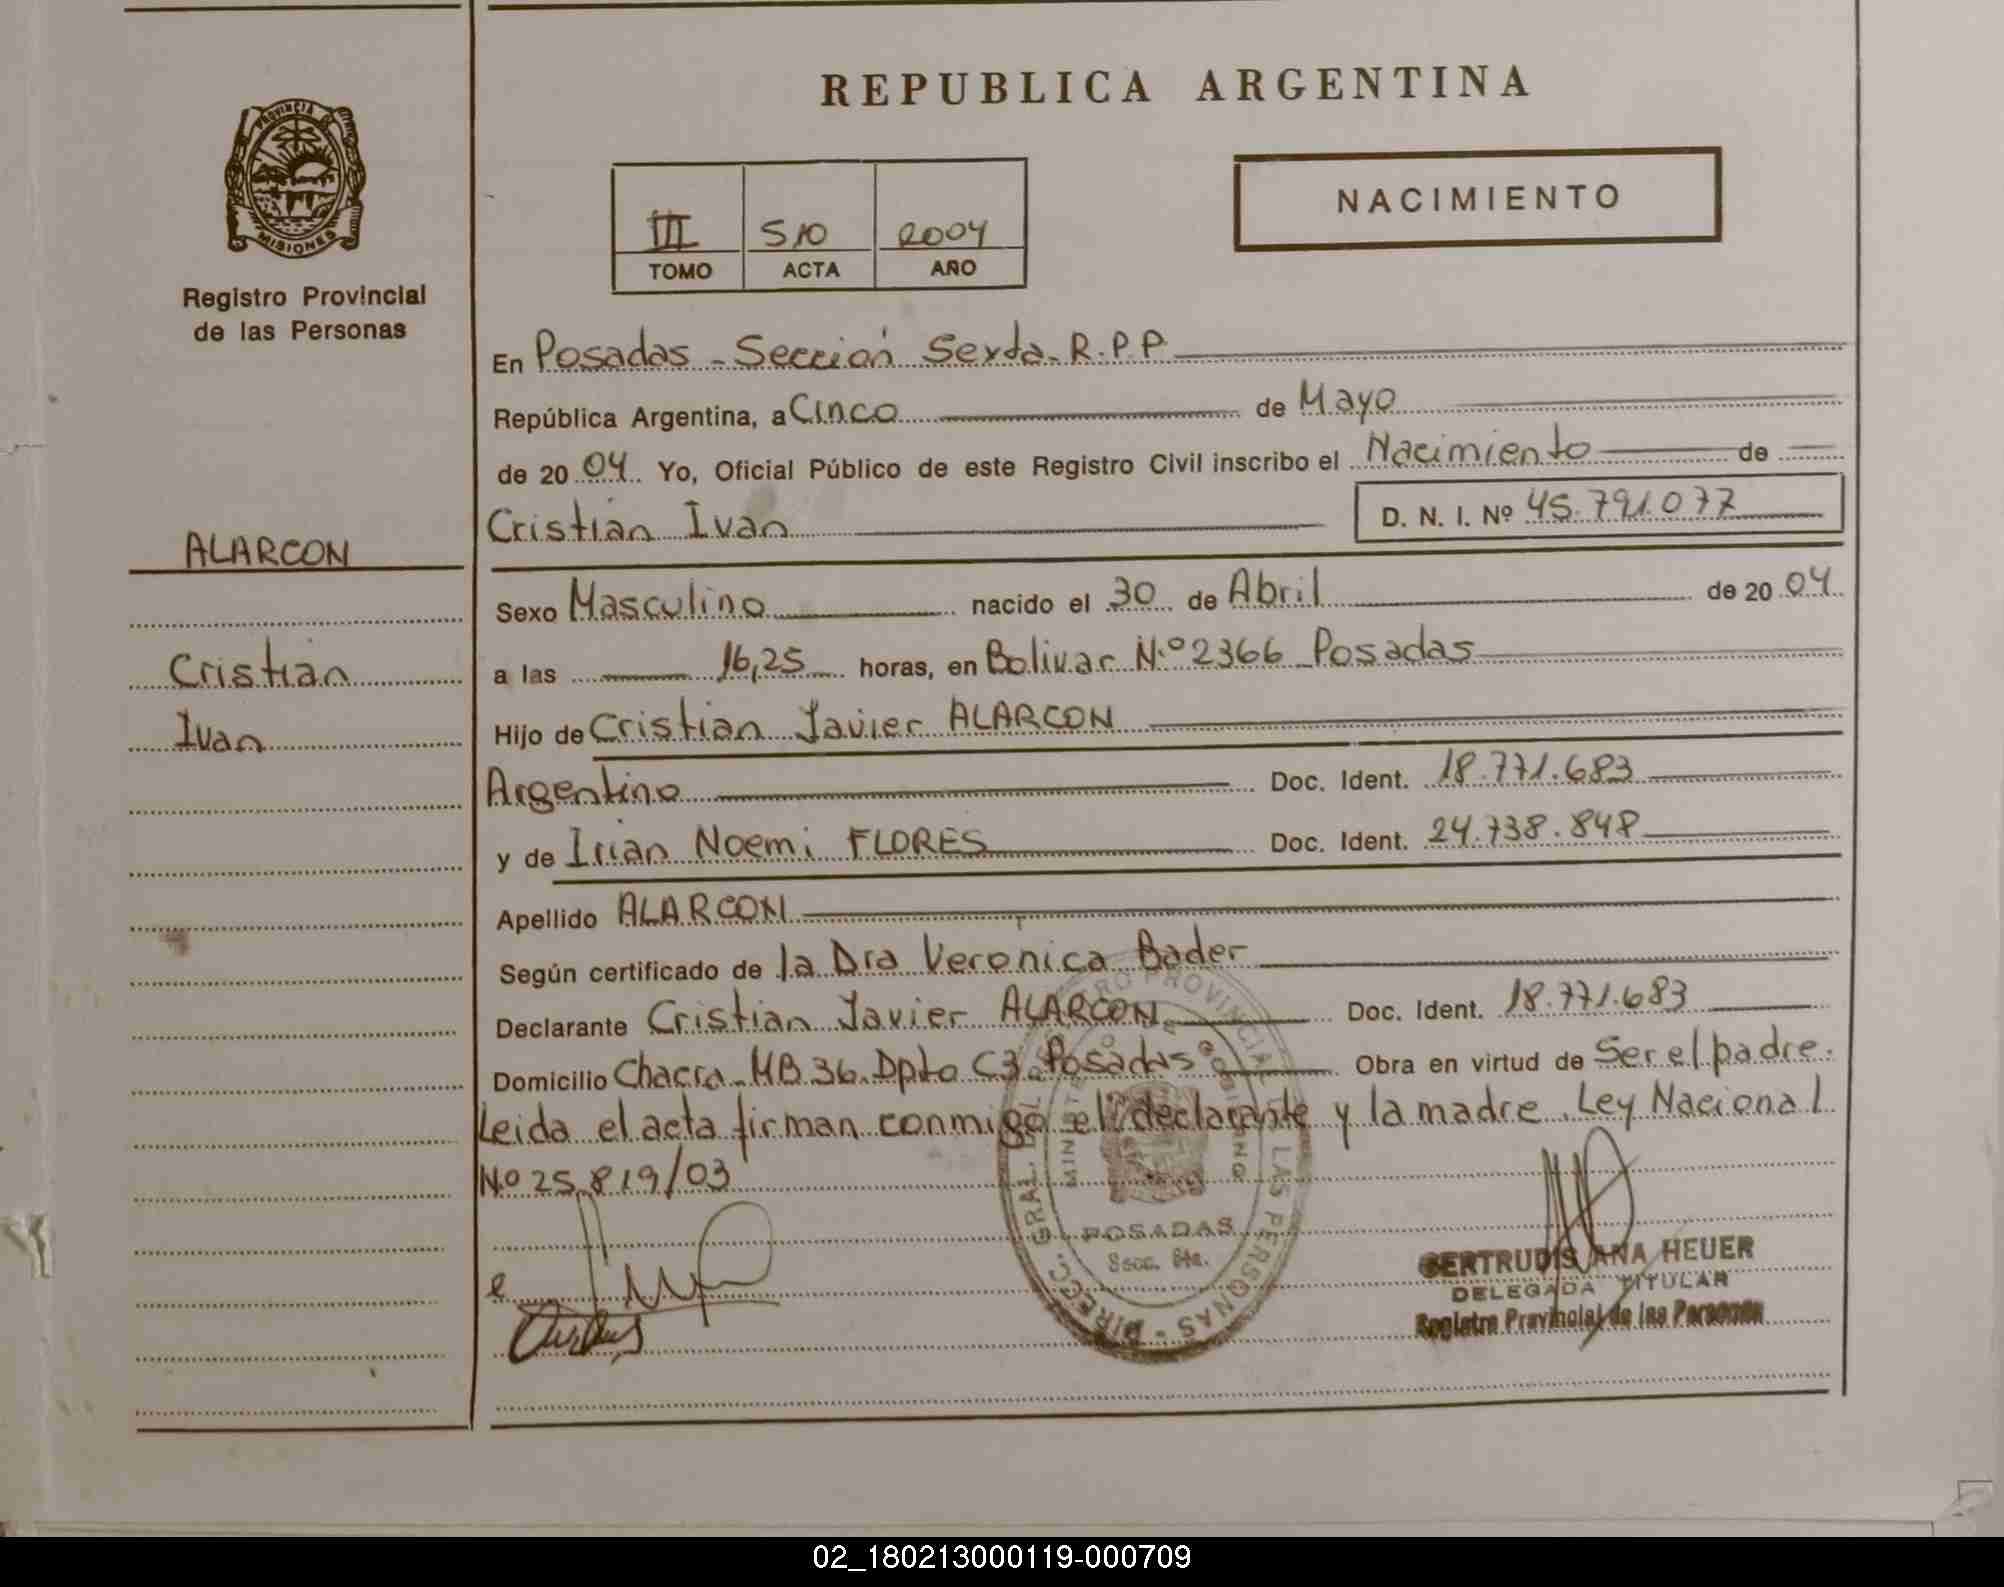 REPUBLICA ARGENTINA
PROVINCIA DE
MISIONES
Registro Provincial
de las Personas
III 510 2004
TOMO ACTA AÑO
NACIMIENTO
En Posadas - Sección Sexta - R.P.P.
República Argentina, a Cinco de Mayo
de 20 04 Yo, Oficial Público de este Registro Civil inscribo el Nacimiento de
Cristian Ivan D. N. I. Nº 45.791.077
ALARCON
Cristian
Ivan
Sexo Masculino nacido el 30 de Abril de 20 04
a las 16,25 horas, en Bolivar Nº 2366 Posadas
Hijo de Cristian Javier ALARCON
Argentino Doc. Ident. 18.771.683
y de Irian Noemi FLORES Doc. Ident. 24.738.848
Apellido ALARCON
Según certificado de la Dra Veronica Bader
Declarante Cristian Javier ALARCON Doc. Ident. 18.771.683
Domicilio Chacra - MB 36. Dpto C3. Posadas Obra en virtud de Ser el padre.
Leida el acta firman conmigo el declarante y la madre. Ley Nacional
Nº 25.819/03
DIRECC. GRAL. DEL REGISTRO PROVINCIAL DE LAS PERSONAS
POSADAS
Secc. 6ta.
GERTRUDIS ANA HEUER
DELEGADA TITULAR
Registro Provincial de las Personas
02_180213000119-000709